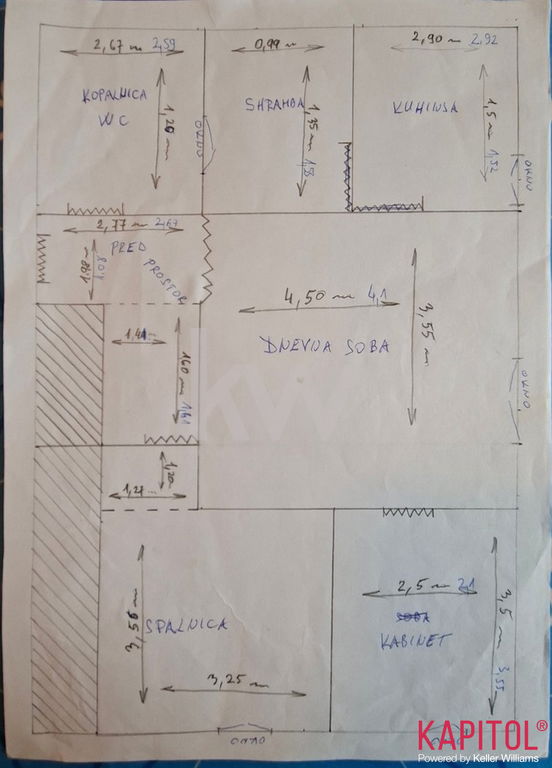 2,67 m 2,59
0,99 m
2,90 m 2,92
KOPALNICA
WC
1,20 m
OKNO
SHRAMBA
1,35 m 1,3
KUHINJA
1,5 m 1,52
OKNO
2,77 m 2,67
PRED
PROSTOR
1,08
4,50 m 4,1
3,55 m
DNEVNA SOBA
OKNO
160 m 1,61
1,20
1,21
3,56 m
SPALNICA
3,25 m
OKNO
2,5 m 2,1
SOBA
KABINET
3,5 m 3,55
OKNO
KAPITOL®
Powered by Keller Williams